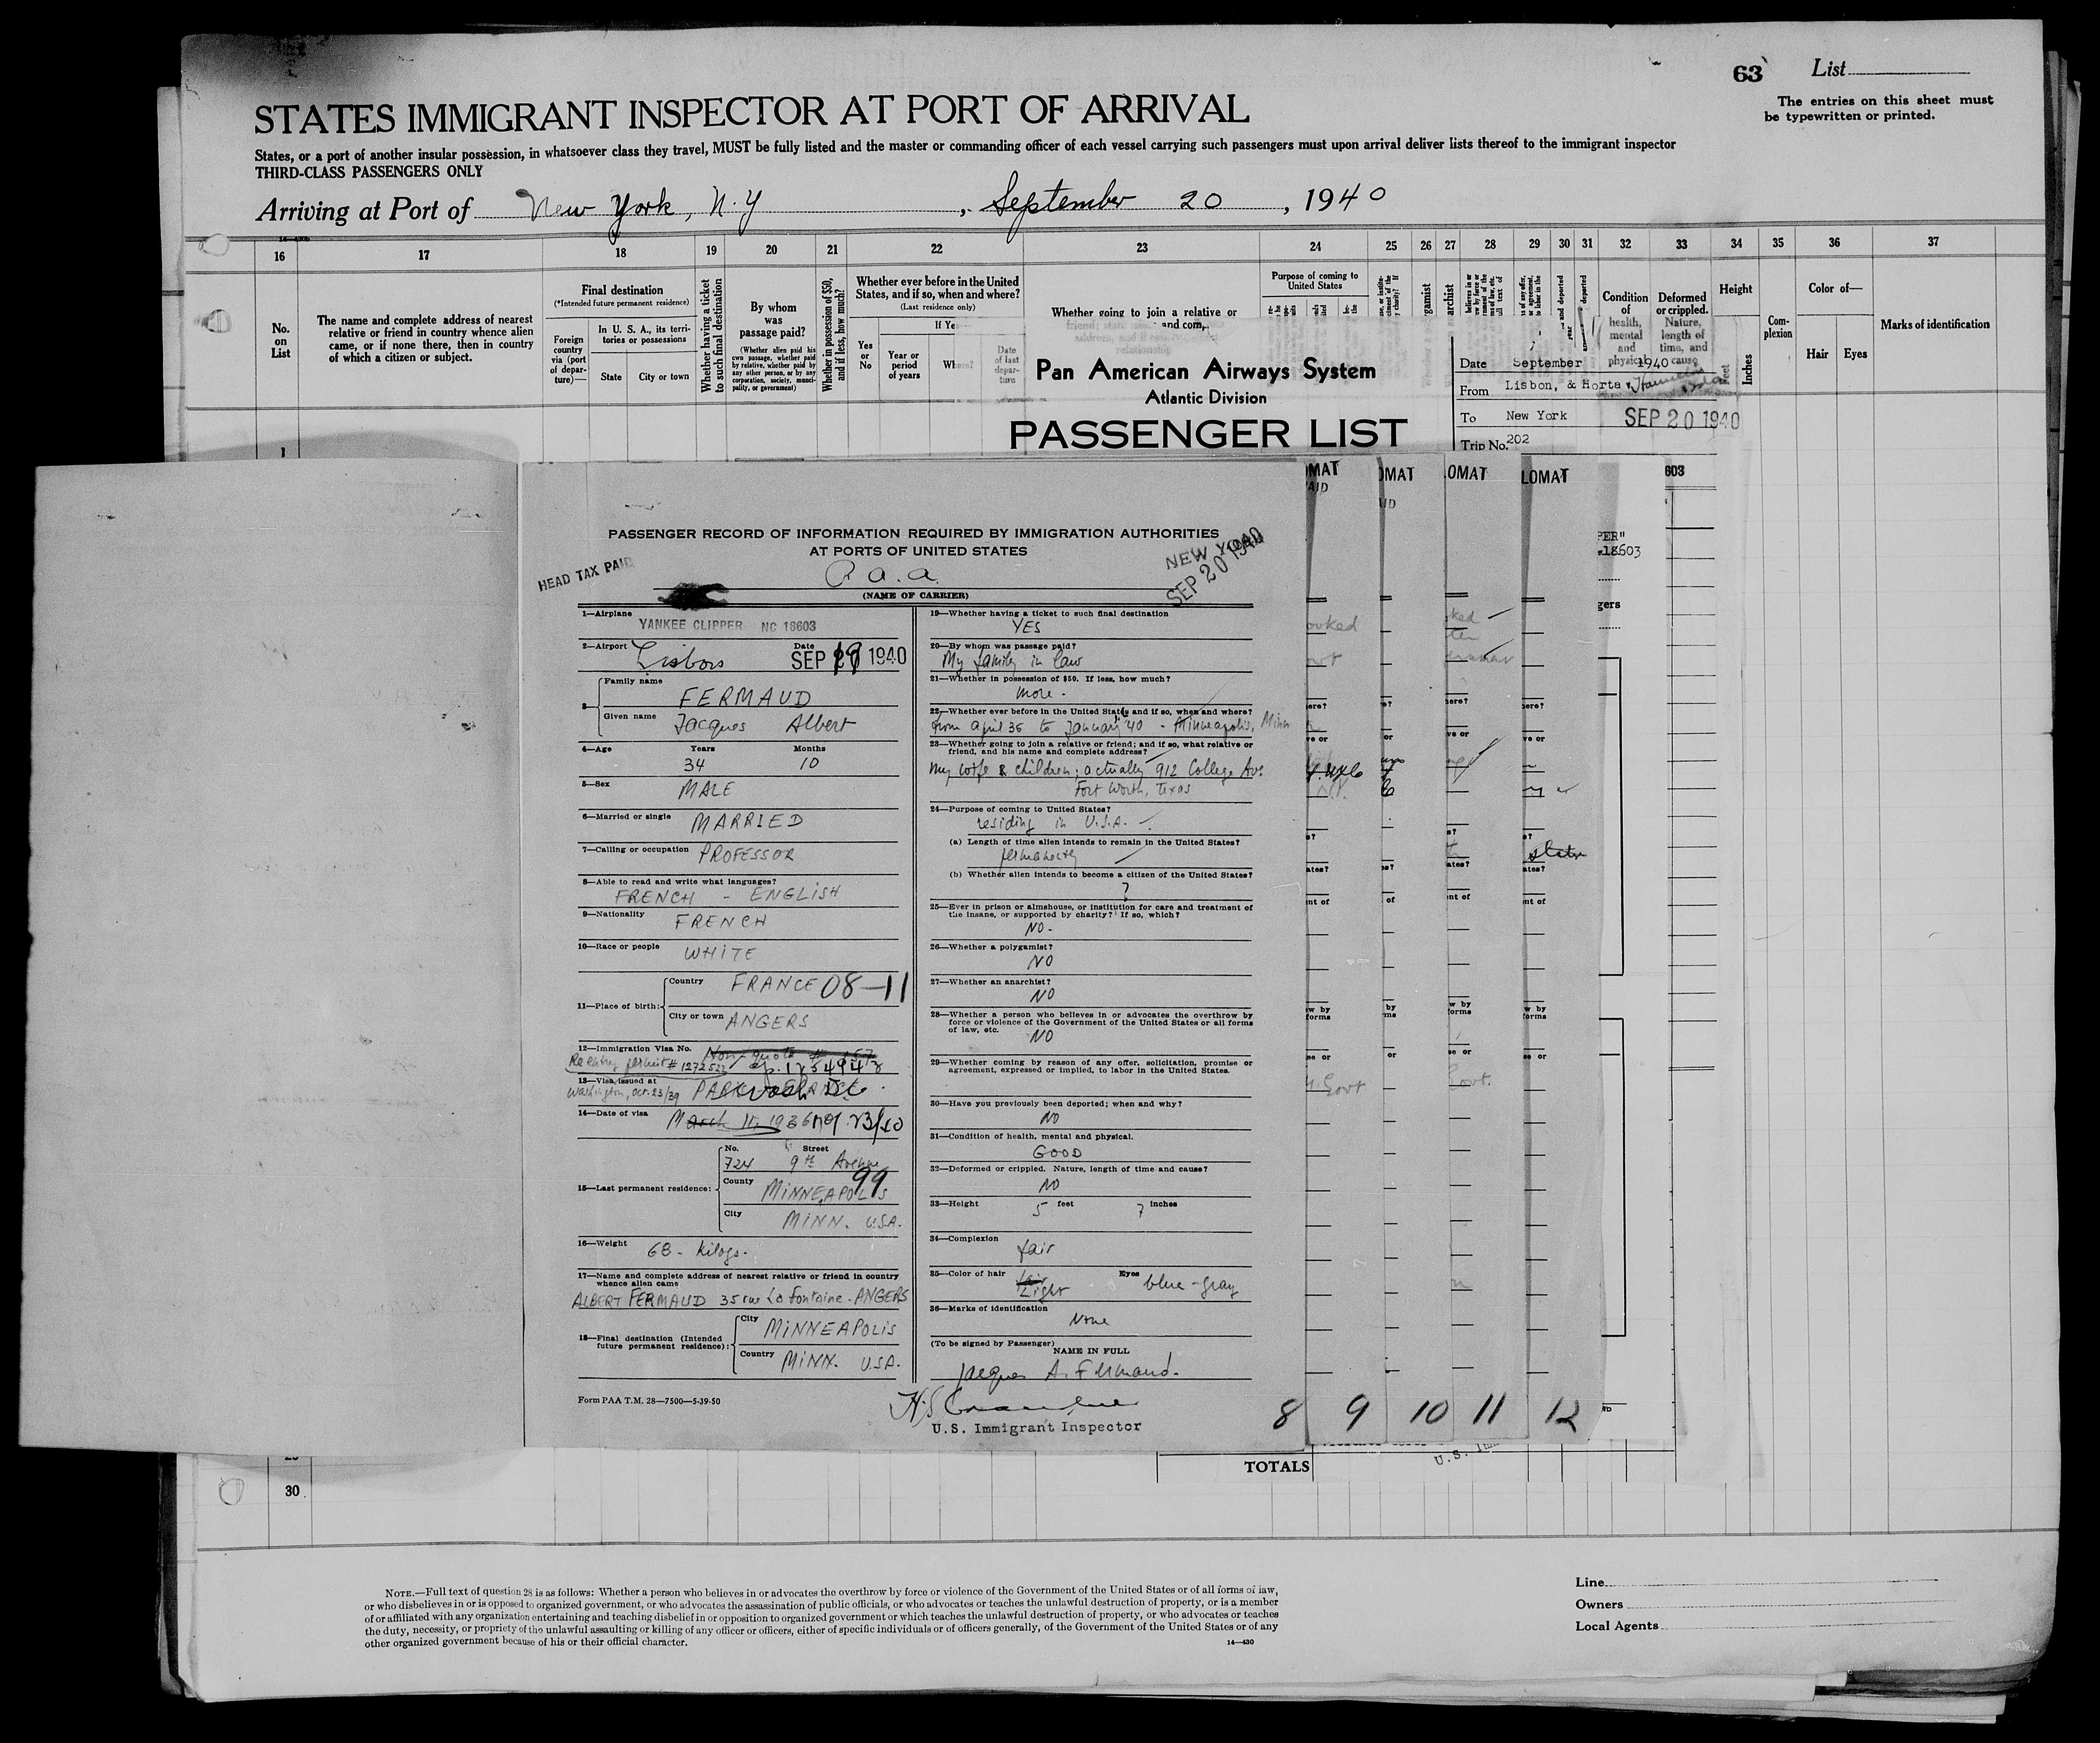 63 List
The entries on this sheet must
be typewritten or printed.
STATES IMMIGRANT INSPECTOR AT PORT OF ARRIVAL
States, or a port of another insular possession, in whatsoever class they travel, MUST be fully listed and the master or commanding officer of each vessel carrying such passengers must upon arrival deliver lists thereof to the immigrant inspector
THIRD-CLASS PASSENGERS ONLY
Arriving at Port of New York, N.Y , September 20 , 1940
16 17 18 19 20 21 22 23 24 25 26 27 28 29 30 31 32 33 34 35 36 37
No.
on
List
The name and complete address of nearest
relative or friend in country whence alien
came, or if none there, then in country
of which a citizen or subject.
Final destination
(*Intended future permanent residence)
Foreign
country
via (port
of depar-
ture)—
In U. S. A., its terri-
tories or possessions
State City or town
Whether having a ticket
to such final destination
By whom
was
passage paid?
(Whether alien paid his
own passage, whether paid
by relative, whether paid by
any other person, or by any
corporation, society, munici-
pality, or government)
Whether in possession of $50,
and if less, how much?
Whether ever before in the United
States, and if so, when and where?
(Last residence only)
If Ye
Yes
or
No
Year or
period
of years
Where?
Date
of last
depar-
ture
Whether going to join a relative or
friend; and com
Purpose of coming to
United States
Condition
of
health,
mental
and
physical
Deformed
or crippled.
Nature,
length of
time, and
cause
Height
Feet
Inches
Com-
plexion
Color of—
Hair Eyes
Marks of identification
1
Pan American Airways System
Atlantic Division
PASSENGER LIST
Date September 1940
From Lisbon, & Horta
To New York SEP 20 1940
Trip No. 202
PASSENGER RECORD OF INFORMATION REQUIRED BY IMMIGRATION AUTHORITIES
AT PORTS OF UNITED STATES
HEAD TAX PAID
P.a.a.
NEW YORK
SEP 20 1940
(NAME OF CARRIER)
1—Airplane YANKEE CLIPPER NC 18603
2—Airport Lisbon Date SEP 19 1940
3— Family name FERMAUD
Given name Jacques Albert
4—Age Years 34 Months 10
5—Sex MALE
6—Married or single MARRIED
7—Calling or occupation PROFESSOR
8—Able to read and write what languages?
FRENCH - ENGLISH
9—Nationality FRENCH
10—Race or people WHITE
11—Place of birth: Country FRANCE 08-11
City or town ANGERS
12—Immigration Visa No.
Re entry permit # 1272522
13—Visa issued at
Washington, Oct. 23/39
14—Date of visa March 11, 1936
15—Last permanent residence: No. 724 Street 9th Avenue
County MINNEAPOLIS 99
City MINN. U.S.A.
16—Weight 68 - Kilogs.
17—Name and complete address of nearest relative or friend in country
whence alien came
ALBERT FERMAUD 35 rue La Fontaine - ANGERS
18—Final destination (Intended
future permanent residence): City MINNEAPOLIS
Country MINN. U.S.A.
Form PAA T.M. 28—7500—5-39-50
19—Whether having a ticket to such final destination
YES
20—By whom was passage paid?
My family in law
21—Whether in possession of $50. If less, how much?
more -
22—Whether ever before in the United States and if so, when and where?
from april 36 to January '40 - Minneapolis, Minn
23—Whether going to join a relative or friend; and if so, what relative or
friend, and his name and complete address?
my wife & children; actually 912 College Ave
Fort Worth, Texas
24—Purpose of coming to United States?
residing in U.S.A.
(a) Length of time alien intends to remain in the United States?
permanently
(b) Whether alien intends to become a citizen of the United States?
?
25—Ever in prison or almshouse, or institution for care and treatment of
the insane, or supported by charity? If so, which?
NO -
26—Whether a polygamist?
NO
27—Whether an anarchist?
NO
28—Whether a person who believes in or advocates the overthrow by
force or violence of the Government of the United States or all forms
of law, etc.
NO
29—Whether coming by reason of any offer, solicitation, promise or
agreement, expressed or implied, to labor in the United States.
30—Have you previously been deported; when and why?
NO
31—Condition of health, mental and physical.
GOOD
32—Deformed or crippled. Nature, length of time and cause?
NO
33—Height 5 feet 7 inches
34—Complexion
fair
35—Color of hair Light Eyes blue-gray
36—Marks of identification
None
(To be signed by Passenger)
NAME IN FULL
Jacques A. Fermaud.
U.S. Immigrant Inspector
8 9 10 11 12
TOTALS
30
NOTE.—Full text of question 28 is as follows: Whether a person who believes in or advocates the overthrow by force or violence of the Government of the United States or of all forms of law,
or who disbelieves in or is opposed to organized government, or who advocates the assassination of public officials, or who advocates or teaches the unlawful destruction of property, or is a member
of or affiliated with any organization entertaining and teaching disbelief in or opposition to organized government or which teaches the unlawful destruction of property, or who advocates or teaches
the duty, necessity, or propriety of the unlawful assaulting or killing of any officer or officers, either of specific individuals or of officers generally, of the Government of the United States or of any
other organized government because of his or their official character.
14—430
Line
Owners
Local Agents